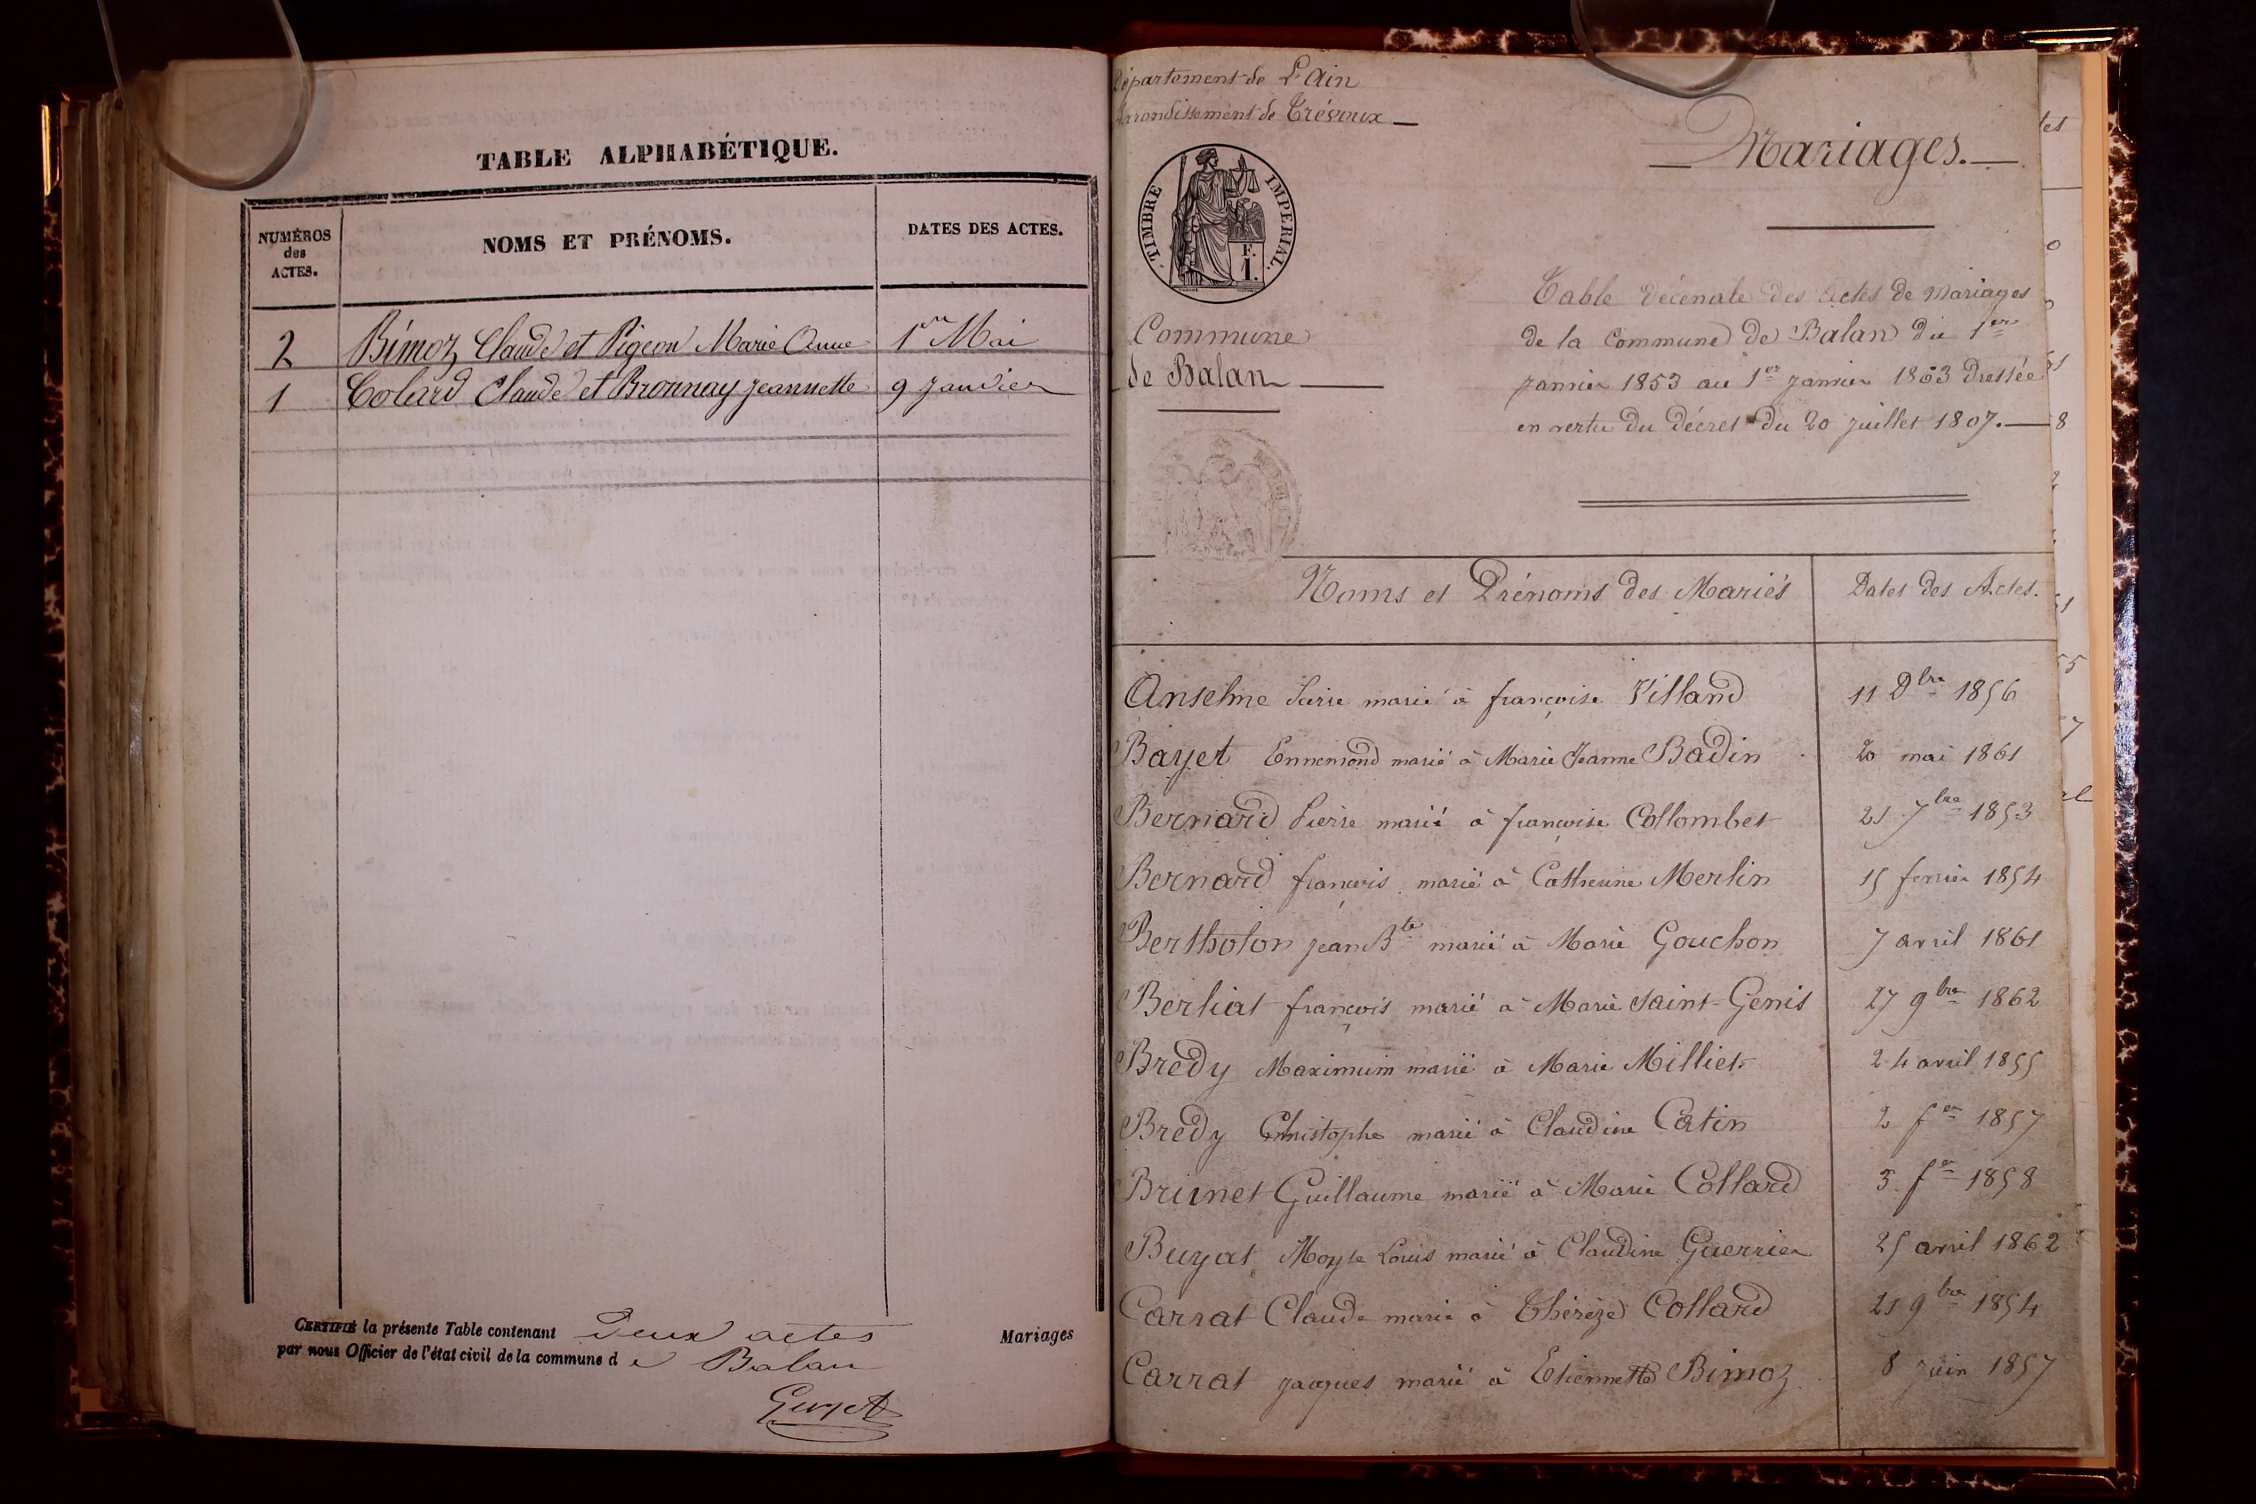 TABLE ALPHABÉTIQUE.
NUMÉROS
des
ACTES.
NOMS ET PRÉNOMS.
DATES DES ACTES.
2 Bimoz Claude et Pigeon Marie Anne 1er Mai
1 Colard Claude et Bronnay jeannette 9 janvier
CERTIFIÉ la présente Table contenant Deux actes Mariages
par nous Officier de l'état civil de la commune de Balan
Guyot
Département de L'Ain
Arrondissement de Trévoux
Mariages.
TIMBRE IMPERIAL.
F.
1.
Commune
de Balan
Table décenale des Actes de Mariages
de la Commune de Balan du 1er
janvier 1853 au 1er janvier 1863 Dressée
en vertu du décret du 20 juillet 1807.
Noms et Prénoms des Mariés Dates des Actes.
Anselme Pierre marié à françoise Villand 11 Dbre 1856
Bayet Ennemond marié à Marie Jeanne Badin 20 mai 1861
Bernard Pierre marié à françoise Collombet 21 7bre 1853
Bernard françois marié à Catherine Merlin 15 fevrier 1854
Bertholon jean Bte marié à Marie Gouchon 7 avril 1861
Berliat françois marié à Marie Saint-Genis 27 9bre 1862
Bredy Maximin marié à Marie Milliet 24 avril 1855
Bredy Christophe marié à Claudine Catin 2 fer 1857
Brunet Guillaume marié à Marie Collard 3 fer 1858
Buyat Moyse Louis marié à Claudine Guerrier 25 avril 1862
Carrat Claude marié à Thérèze Collard 21 9bre 1854
Carrat jacques marié à Etiennette Bimoz 8 juin 1857